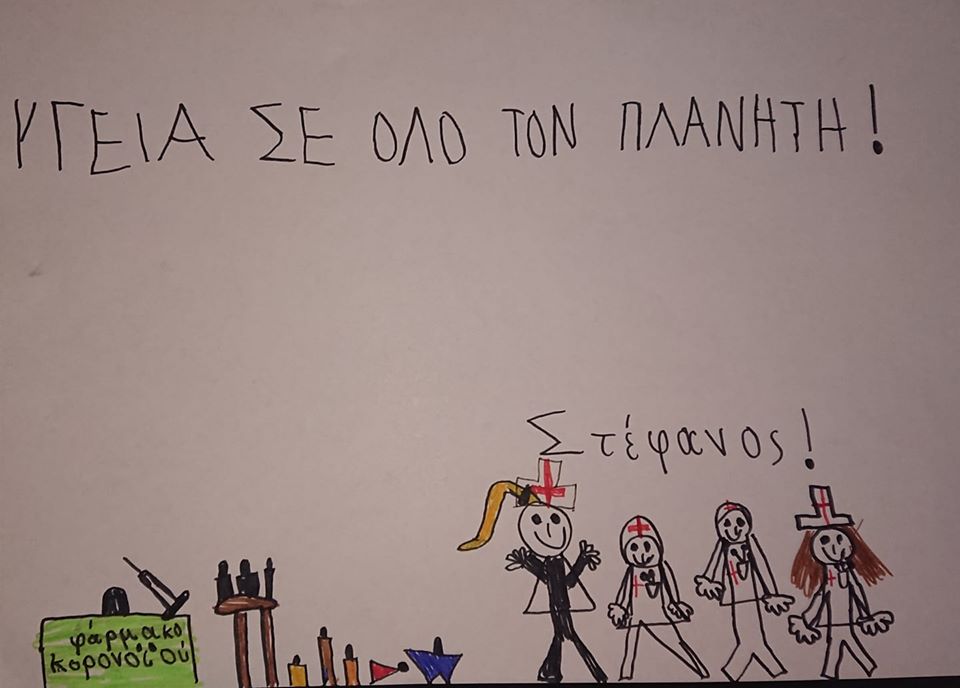 ΥΓΕΙΑ ΣΕ ΟΛΟ ΤΟΝ ΠΛΑΝΗΤΗ!
Στέφανος!
φάρμακο
κορονόϊού